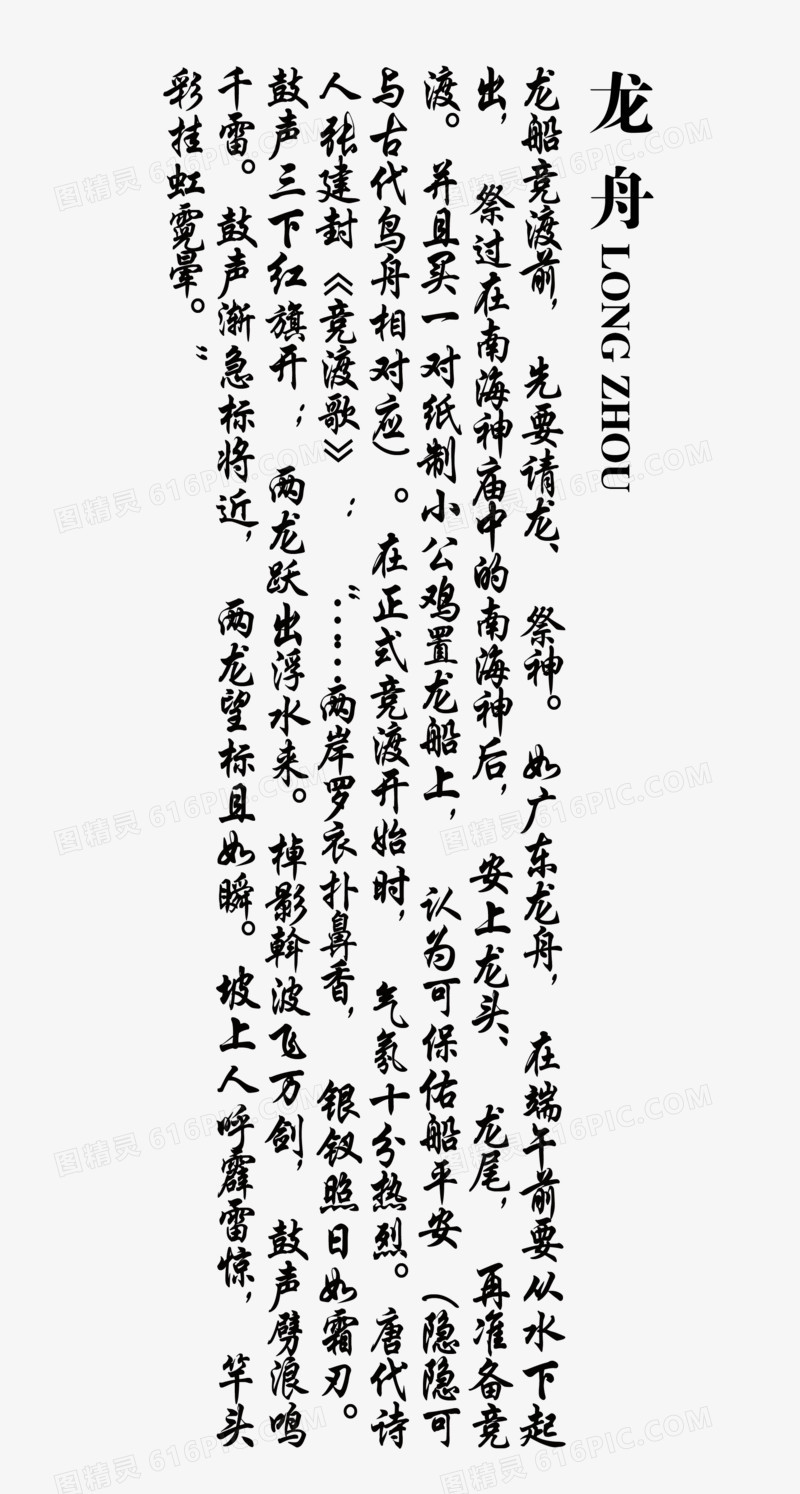 龙舟 LONG ZHOU
龙船竞渡前，先要请龙、祭神。如广东龙舟，在端午前要从水下起
出，祭过在南海神庙中的南海神后，安上龙头、龙尾，再准备竞
渡。并且买一对纸制小公鸡置龙船上，认为可保佑船平安（隐隐可
与古代鸟舟相对应）。在正式竞渡开始时，气氛十分热烈。唐代诗
人张建封《竞渡歌》：“……两岸罗衣扑鼻香，银钗照日如霜刃。
鼓声三下红旗开；两龙跃出浮水来。棹影斡波飞万剑，鼓声劈浪鸣
千雷。鼓声渐急标将近，两龙望标且如瞬。坡上人呼霹雷惊，竿头
彩挂虹霓晕。”
图精灵 616PIC.COM